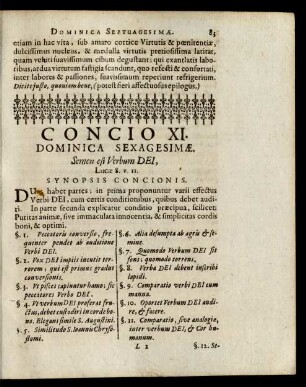 DOMINICA SEPTUAGESIMÆ. 83
etiam in hac vita, sub amaro cortice Virtutis & pœnitentiæ,
dulcissimus nucleus, & medulla virtutis pretiosissima latitat,
quam veluti suavissimum cibum degustant: qui exantlatis laboribus, ardua virtutem fastigia scandunt, quo refecti & confortati,
inter labores & passiones, suavissimum reperiunt refrigerium.
Dicite justo, quoniam bene, (potest fieri affectuosus epilogus.)
CONCIO XI.
DOMINICA SEXAGESIMÆ.
Semen est Verbum DEI,
Lucæ 8. v. 11.
SYNOPSIS CONCIONIS.
DUas habet partes: in prima proponuntur varii effectus
Verbi DEI, cum certis conditionibus, quibus debet audiri. In parte secunda explicatur conditio præcipua, scilicet
Puritas animæ, sive immaculata innocentia, & simplicitas cordis
boni, & optimi.
§. 1. Peccatoris conversio, frequenter pendet ab auditione
Verbi DEI.
§. 2. Vox DEI impiis incutit terrorem; qui est primus gradus
conversionis.
§. 3. Ut pisces capiuntur hamo: sic
peccatores Verbo DEI.
§. 4. Ut verbum DEI proferat fructus, debet custodiri in corde bono. Elegans simile S. Augustini.
§. 5. Similitudo S. Ioannis Chrysostomi.
§. 6. Alia desumpta ab agris & semine.
§. 7. Quomodo Verbum DEI sit
fons: quomodo torrens.
§. 8. Verba DEI debent inscribi
lapidi.
§. 9. Comparatio verbi DEI cum
manna.
§. 10. Oportet Verbum DEI audire, & facere.
§. 11. Comparatio, sive analogia,
inter verbum DEI, & Cor humanum.
L 2 §. 12. Se-